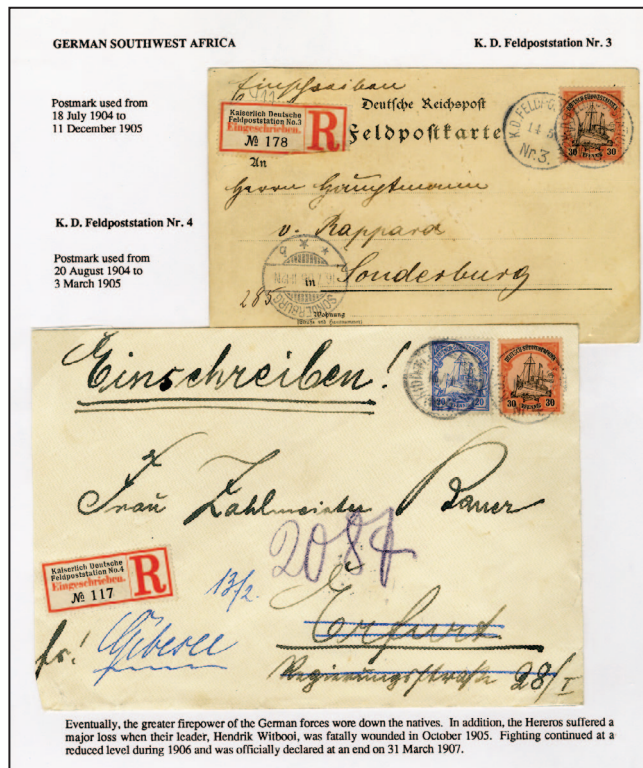 GERMAN SOUTHWEST AFRICA
K. D. Feldpoststation Nr. 3
Postmark used from
18 July 1904 to
11 December 1905
K. D. Feldpoststation Nr. 4
Postmark used from
20 August 1904 to
3 March 1905
Einschreiben
Kaiserlich Deutsche
Feldpoststation No.3
Eingeschrieben.
№ 178
R
Deutsche Reichspost
Feldpostkarte
K.D. FELDPO
Nr.3.
30 30
An
Herrn Hauptmann
v. Rappard
in Sonderburg
SONDERBURG
285
Wohnung
Einschreiben!
20 20
30 30
Frau Zahlmeister Bauer
2087
Kaiserlich Deutsche
Feldpoststation No.4
Eingeschrieben.
№ 117
R
13/2.
Erfurt
fr! Gebesee
Regierungsstraße 28/I
Eventually, the greater firepower of the German forces wore down the natives. In addition, the Hereros suffered a
major loss when their leader, Hendrik Witbooi, was fatally wounded in October 1905. Fighting continued at a
reduced level during 1906 and was officially declared at an end on 31 March 1907.